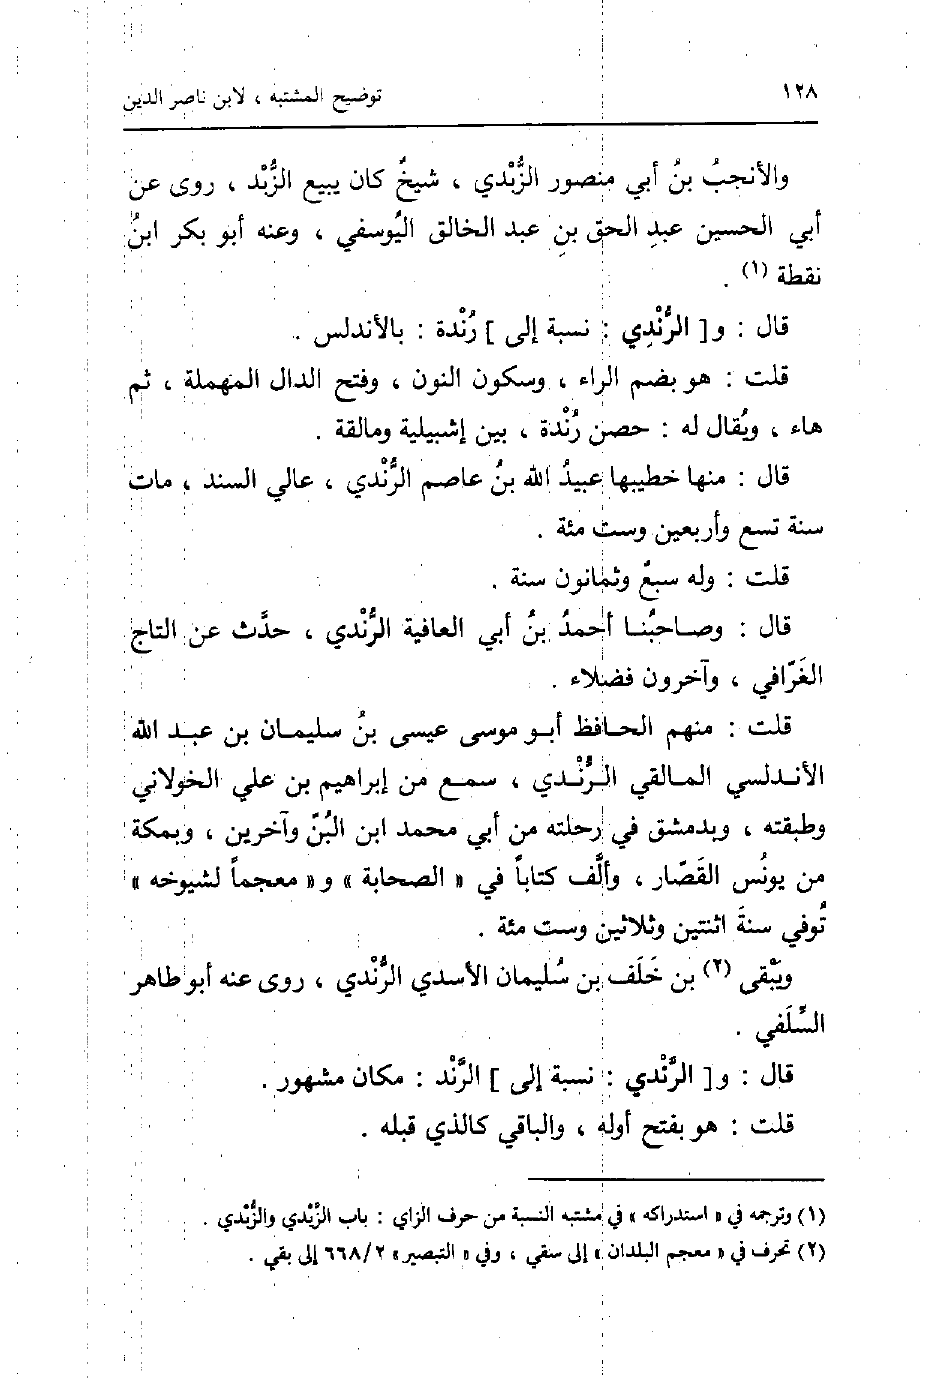 ١٢٨ توضيح المشتبه ، لابن ناصر الدين
والأنجبُ بنُ أبي منصور الزُّبْدي ، شيخٌ كان يبيع الزُّبْد ، روى عن
أبي الحسين عبدِ الحق بنِ عبد الخالق اليُوسفي ، وعنه أبو بكر ابنُ
نقطة (١) .
قال : و[ الرُّنْدِي : نسبة إلى ] رُنْدة : بالأندلس .
قلت : هو بضم الراء ، وسكون النون ، وفتح الدال المهملة ، ثم
هاء ، ويُقال له : حصن رُنْدة ، بين إشبيلية ومالقة .
قال : منها خطيبها عبيدُ الله بنُ عاصم الرُّنْدي ، عالي السند ، مات
سنة تسع وأربعين وست مئة .
قلت : وله سبعٌ وثمانون سنة .
قال : وصاحبُنا أحمدُ بنُ أبي العافية الرُّنْدي ، حدَّث عن التاج
الغَرّافي ، وآخرون فضلاء .
قلت : منهم الحافظ أبو موسى عيسى بنُ سليمان بن عبد الله
الأندلسي المالقي الرُّنْدي ، سمع من إبراهيم بن علي الخولاني
وطبقته ، وبدمشق في رحلته من أبي محمد ابن البُنّ وآخرين ، وبمكة
من يونُس القَصّار ، وألَّف كتاباً في « الصحابة » و « معجماً لشيوخه »
تُوفي سنةَ اثنتين وثلاثين وست مئة .
ويَبْقى (٢) بن خَلَف بن سُليمان الأسدي الرُّنْدي ، روى عنه أبو طاهر
السِّلَفي .
قال : و[ الرَّنْدي : نسبة إلى ] الرَّنْد : مكان مشهور .
قلت : هو بفتح أوله ، والباقي كالذي قبله .
(١) وترجمه في « استدراكه » في مشتبه النسبة من حرف الزاي : باب الزَّيْدي والزُّبْدي .
(٢) تحرف في « معجم البلدان » إلى سقي ، وفي « التبصير » ٦٦٨/٢ إلى بقي .